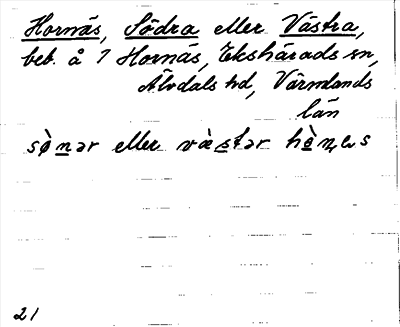 Hornäs, Södra eller Västra,
beb. å 7 Hornäs, Ekshärads sn,
Älvdals hd, Värmlands
län
eller
21